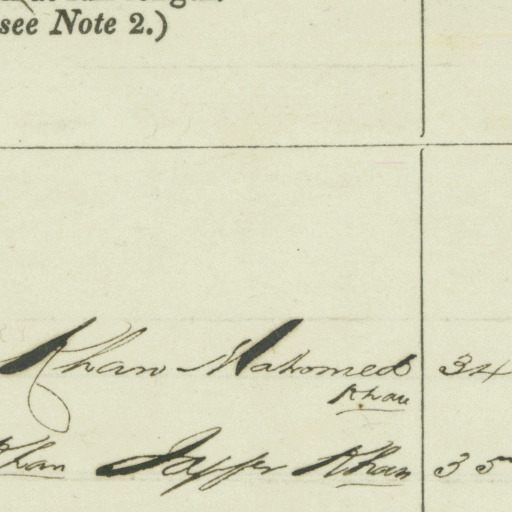 see Note 2.)
Khan Mahomed 34
Khan
Khan Jaffer Khan 35